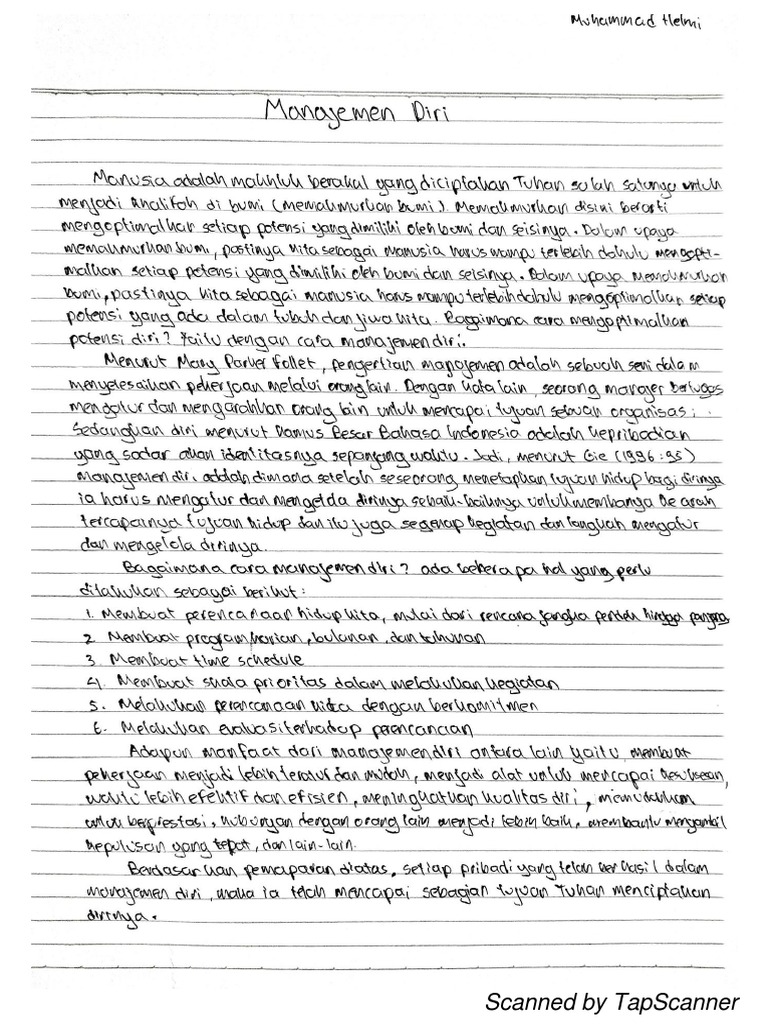 Muhammad Helmi
Manajemen Diri
Manusia adalah makhluk berakal yang diciptakan Tuhan salah satunya untuk
menjadi khalifah di bumi (memakmurkan bumi). Memakmurkan disini berarti
mengoptimalkan setiap potensi yang dimiliki oleh bumi dan seisinya. Dalam upaya
memakmurkan bumi, pastinya kita sebagai manusia harus mampu terlebih dahulu mengopti-
malkan setiap potensi yang dimiliki oleh bumi dan seisinya. Dalam upaya memakmurkan
bumi, pastinya kita sebagai manusia harus mampu terlebih dahulu mengoptimalkan setiap
potensi yang ada dalam tubuh dan jiwa kita. Bagaimana cara mengoptimalkan
potensi diri? Yaitu dengan cara manajemen diri.
Menurut Mary Parker Follet, pengertian manajemen adalah sebuah seni dalam
menyelesaikan pekerjaan melalui orang lain. Dengan kata lain, seorang manajer bertugas
mengatur dan mengarahkan orang lain untuk mencapai tujuan sebuah organisasi.
Sedangkan diri menurut Kamus Besar Bahasa Indonesia adalah kepribadian
yang sadar akan identitasnya sepanjang waktu. Jadi, menurut Gie (1996:95)
manajemen diri adalah dimana setelah seseorang menetapkan tujuan hidup bagi dirinya
ia harus mengatur dan mengelola dirinya sebaik-baiknya untuk membawa ke arah
tercapainya tujuan hidup dan itu juga segenap kegiatan dan langkah mengatur
dan mengelola dirinya.
Bagaimana cara manajemen diri? ada beberapa hal yang perlu
dilakukan sebagai berikut:
1. Membuat perencanaan hidup kita, mulai dari rencana jangka pendek hingga panjang
2. Membuat program harian, bulanan, dan tahunan
3. Membuat time schedule
4. Membuat skala prioritas dalam melakukan kegiatan
5. Melakukan perencanaan dengan berkomitmen
6. Melakukan evaluasi terhadap perencanaan
Adapun manfaat dari manajemen diri antara lain yaitu, membuat
pekerjaan menjadi lebih teratur dan mudah, menjadi alat untuk mencapai kesuksesan,
waktu lebih efektif dan efisien, meningkatkan kualitas diri, memudahkan
untuk berprestasi, hubungan dengan orang lain menjadi lebih baik, membantu mengambil
keputusan yang tepat, dan lain-lain.
Berdasarkan pemaparan diatas, setiap pribadi yang telah berhasil dalam
manajemen diri, maka ia telah mencapai sebagian tujuan Tuhan menciptakan
dirinya.
Scanned by TapScanner